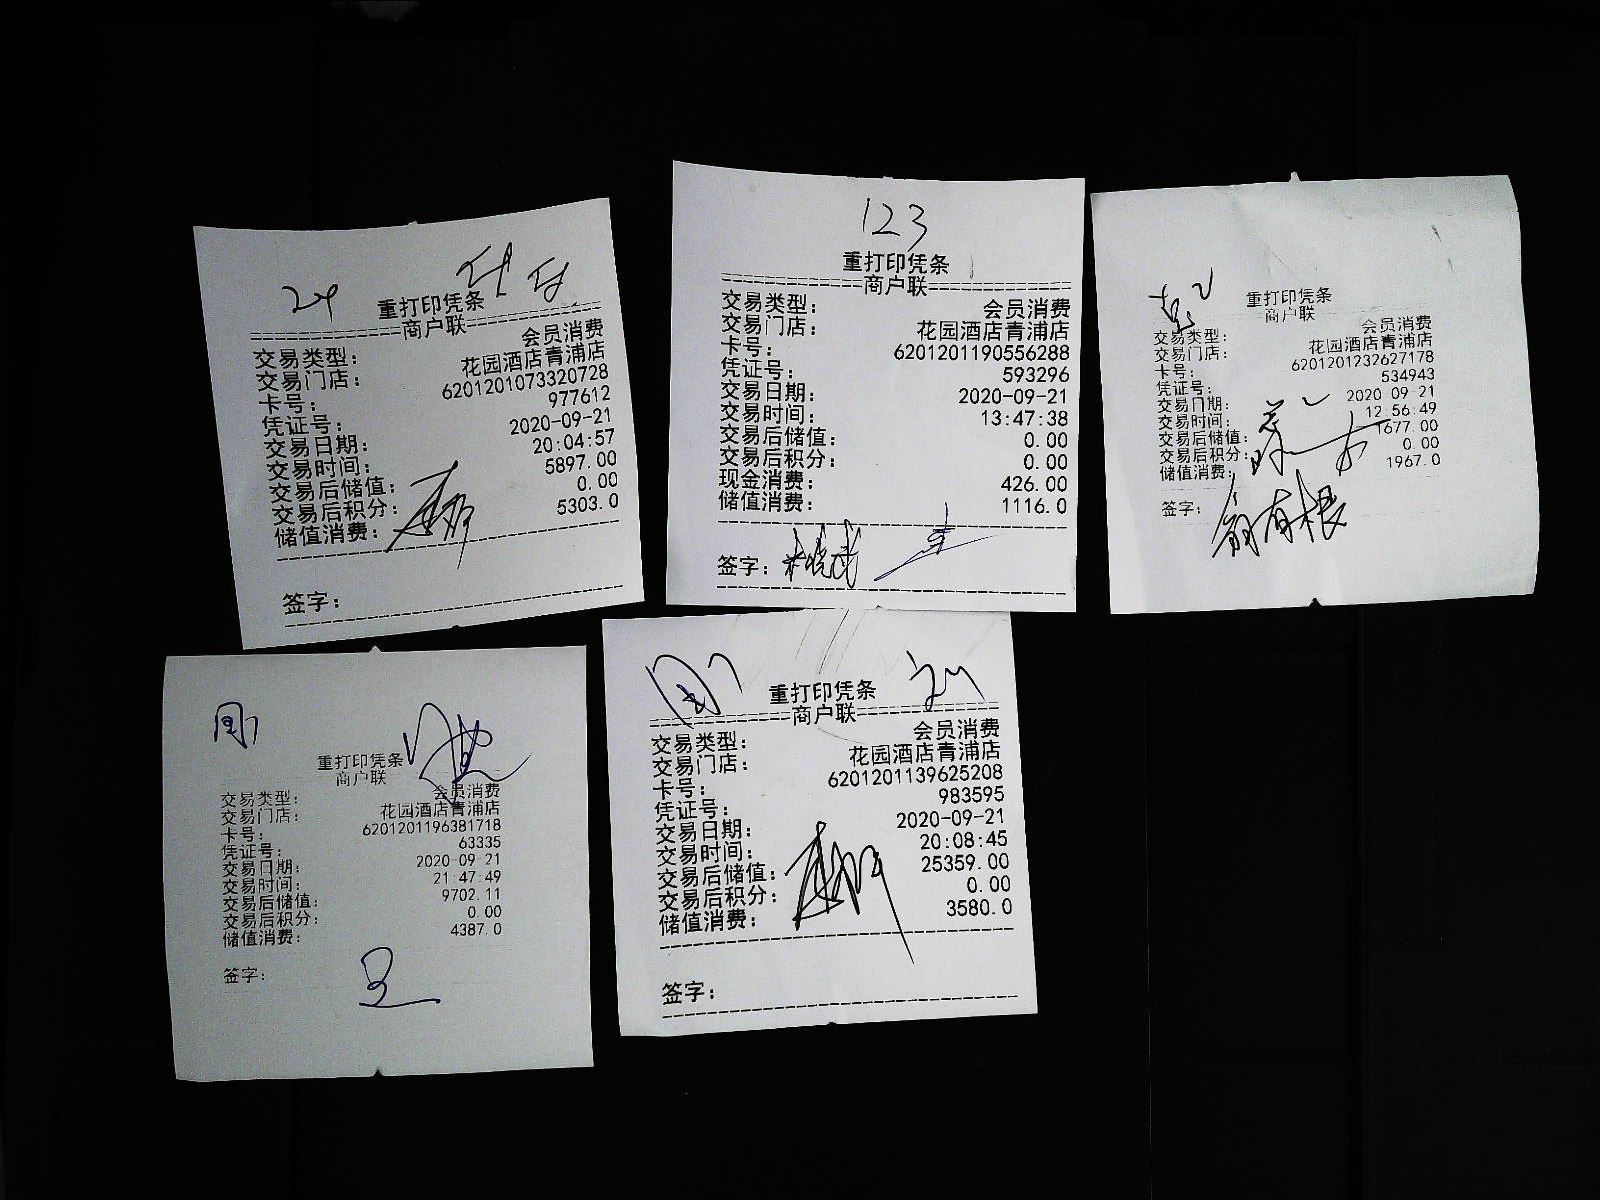 24
重打印凭条
商户联
交易类型： 会员消费
交易门店： 花园酒店青浦店
卡号： 6201201073320728
凭证号： 977612
交易日期： 2020-09-21
交易时间： 20:04:57
交易后储值： 5897.00
交易后积分： 0.00
储值消费： 5303.0
签字：
123
重打印凭条
商户联
交易类型： 会员消费
交易门店： 花园酒店青浦店
卡号： 6201201190556288
凭证号： 593296
交易日期： 2020-09-21
交易时间： 13:47:38
交易后储值： 0.00
交易后积分： 0.00
现金消费： 426.00
储值消费： 1116.0
签字：
重打印凭条
商户联
交易类型： 会员消费
交易门店： 花园酒店青浦店
卡号： 6201201232627178
凭证号： 534943
交易日期： 2020-09-21
交易时间： 12:56:49
交易后储值： 1677.00
交易后积分： 0.00
储值消费： 1967.0
签字： 翁有根
重打印凭条
商户联
交易类型： 会员消费
交易门店： 花园酒店青浦店
卡号： 6201201196381718
凭证号： 63335
交易日期： 2020-09-21
交易时间： 21:47:49
交易后储值： 9702.11
交易后积分： 0.00
储值消费： 4387.0
签字：
重打印凭条
商户联
交易类型： 会员消费
交易门店： 花园酒店青浦店
卡号： 6201201139625208
凭证号： 983595
交易日期： 2020-09-21
交易时间： 20:08:45
交易后储值： 25359.00
交易后积分： 0.00
储值消费： 3580.0
签字：